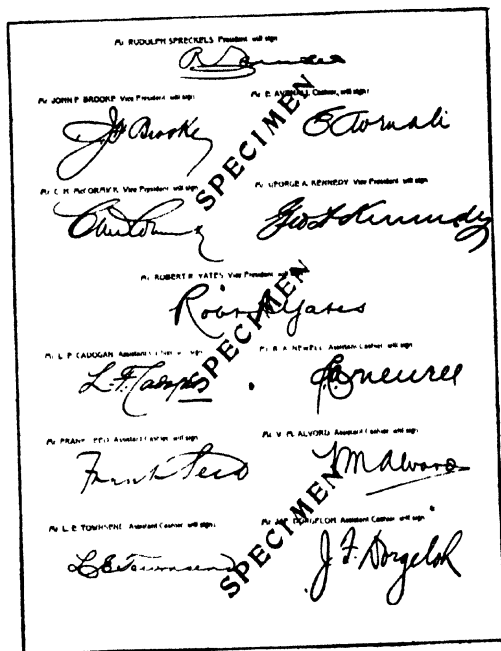 Mr. RUDOLPH SPRECKELS President will sign
Mr. JOHN P. BROOKE Vice President will sign
J P Brooke
Mr. Cashier, will sign
SPECIMEN
Mr. C. H. McCORMICK Vice President will sign
Mr. GEORGE A. KENNEDY Vice President will sign
Geo A Kennedy
Mr. ROBERT R. YATES Vice President will sign
Robt R Yates
SPECIMEN
Mr. L. F. CADOGAN Assistant Cashier will sign
L. F. Cadogan
Mr. B. A. NEWELL Assistant Cashier will sign
Mr. FRANK Assistant Cashier will sign
Frank
Mr. V. M. ALVORD Assistant Cashier will sign
V M Alvord
Mr. L. E. TOWNSEND Assistant Cashier will sign
L E Townsend
SPECIMEN
Mr. DORGELOH Assistant Cashier will sign
J. F. Dorgeloh